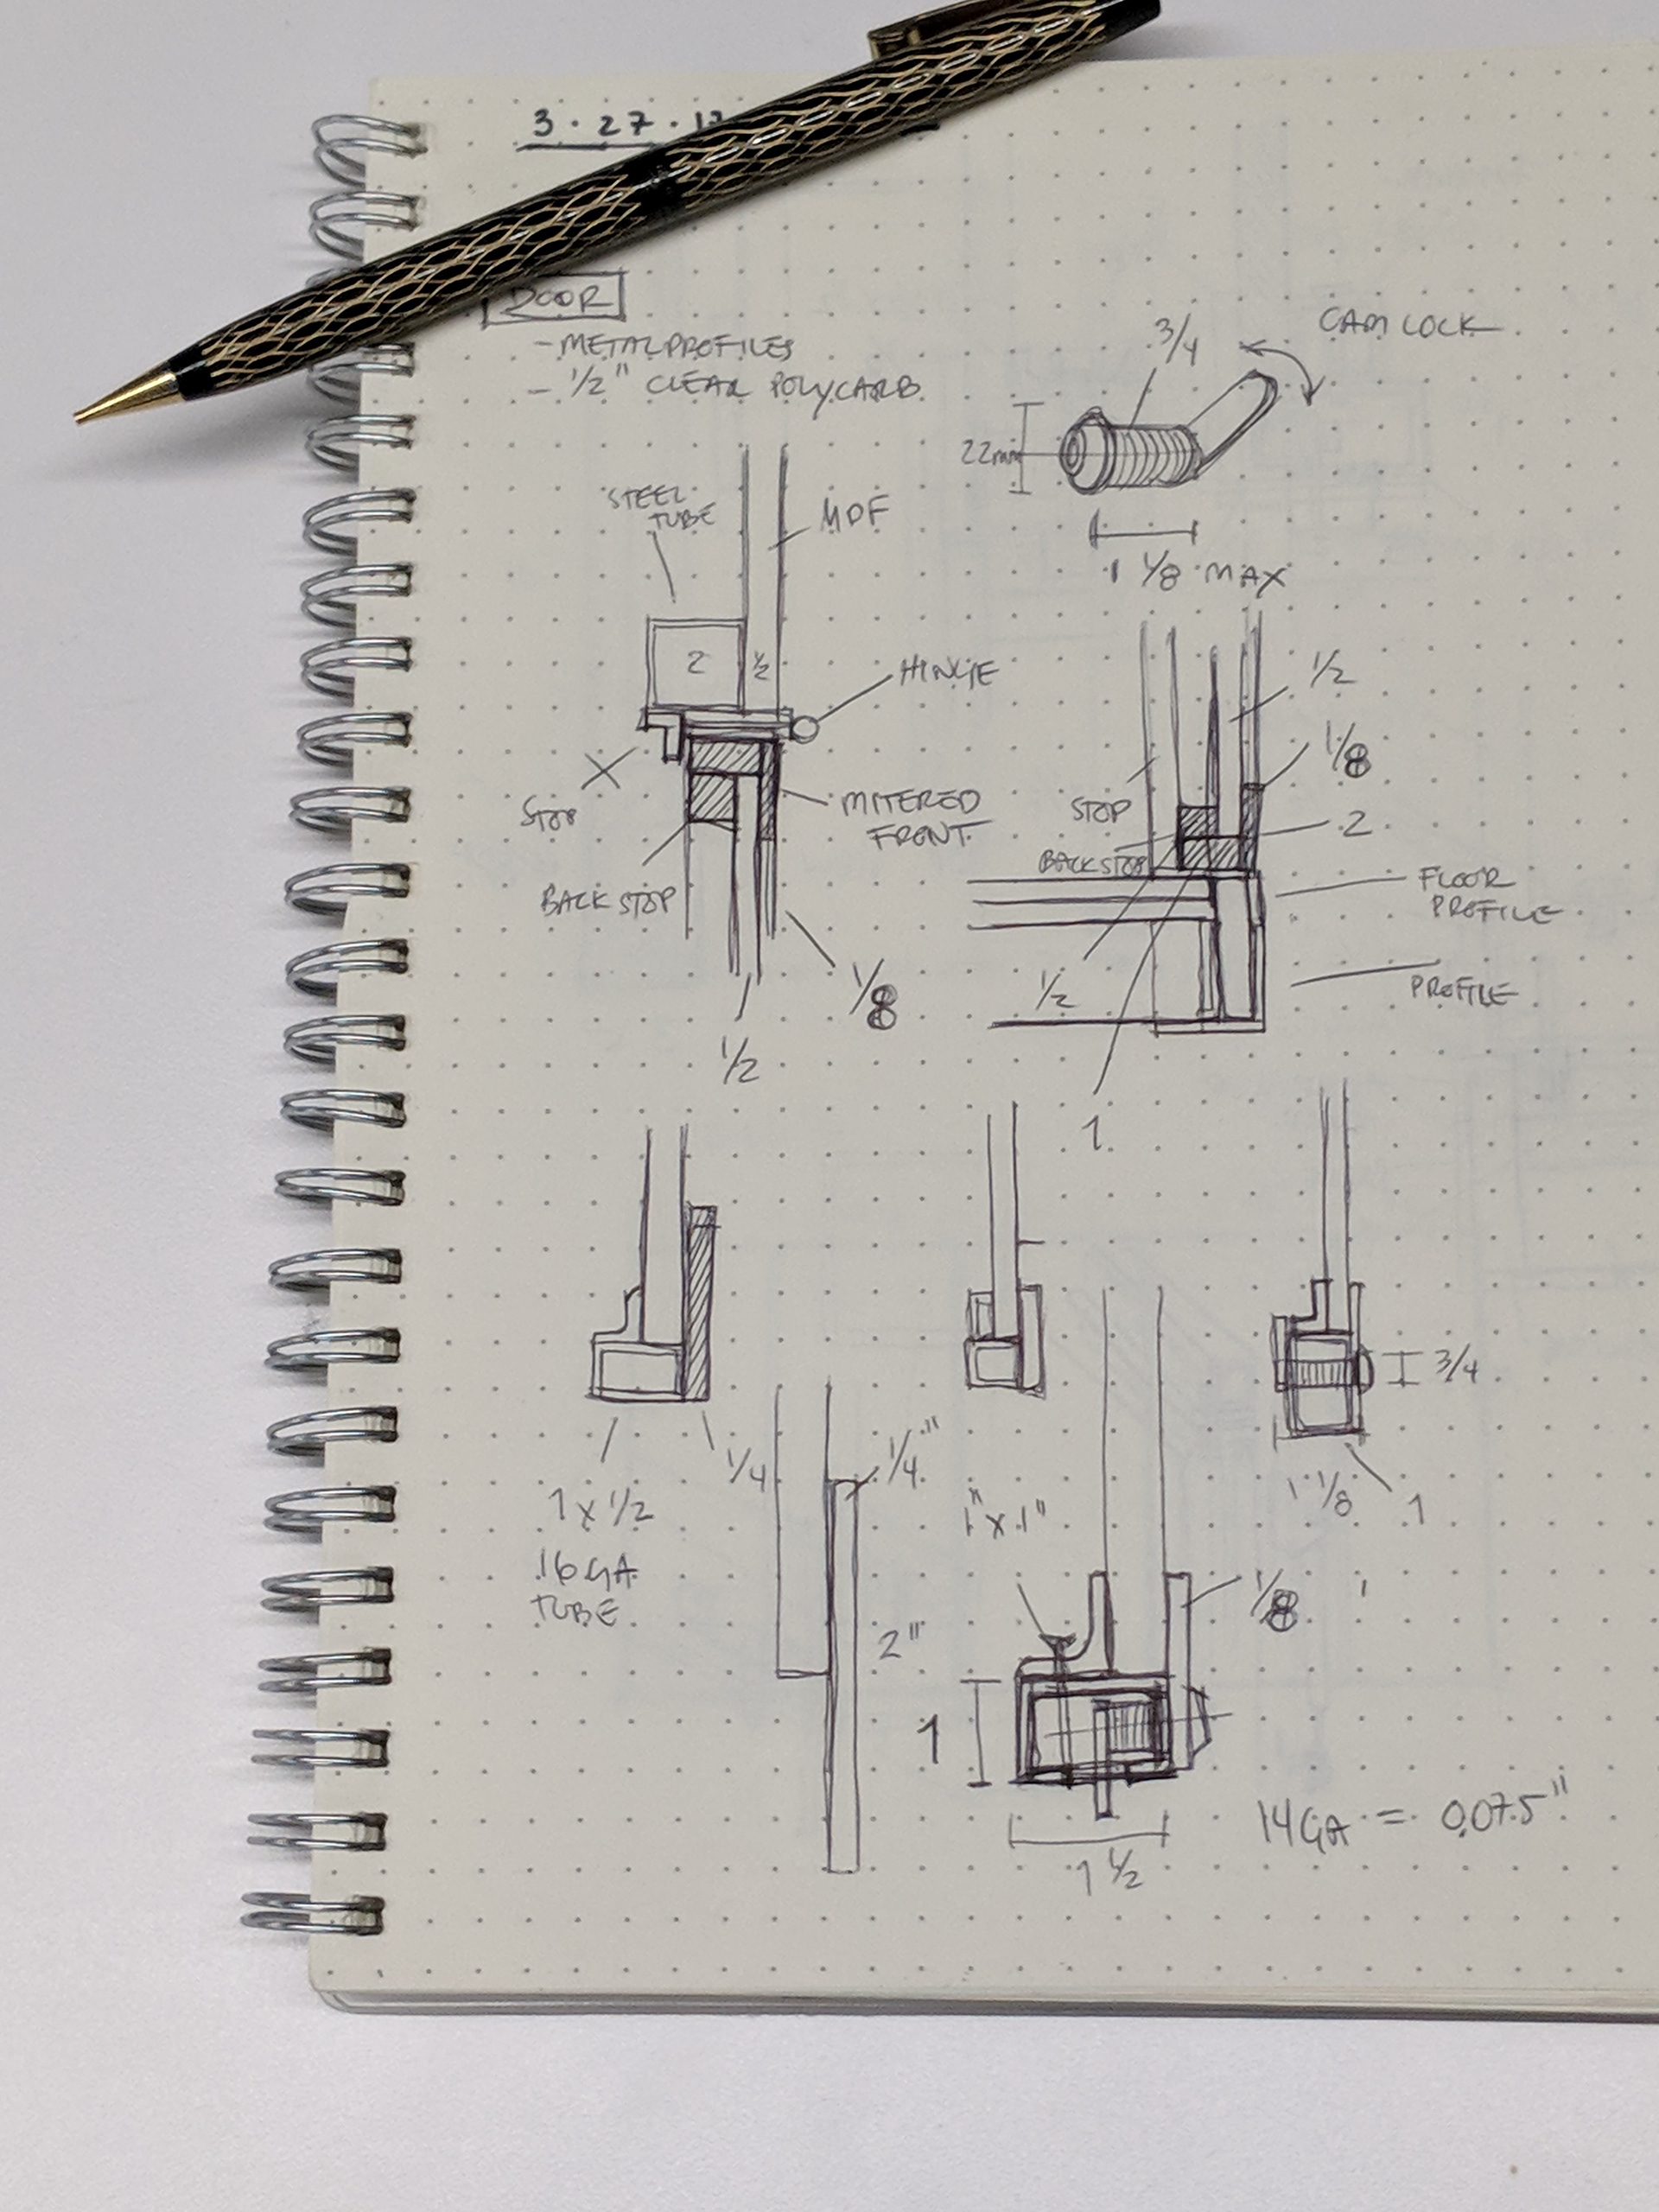 3·27·17
DOOR
- METAL PROFILES
- 1/2" CLEAR POLYCARB.
CAM LOCK
3/4
22mm
1 1/8 MAX
STEEL
TUBE
MDF
2
1/2
HINGE
STOP
MITERED
FRONT
BACK STOP
1/8
1/2
1/2
1/8
STOP
2
BACK STOP
FLOOR
PROFILE
1/2
PROFILE
1
3/4
1/4
1 x 1/2
16 GA
TUBE
1/4"
2"
1 1/8
1
1" x 1"
1/8
1
1 1/2
14GA = 0.075"